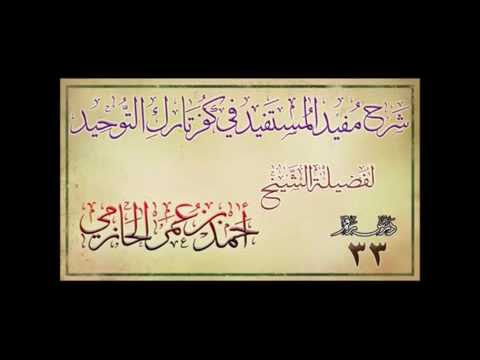 شرح مفيد المستفيد في كفر تارك التوحيد
لفضيلة الشيخ
أحمد بن عمر الحازمي
٣٣